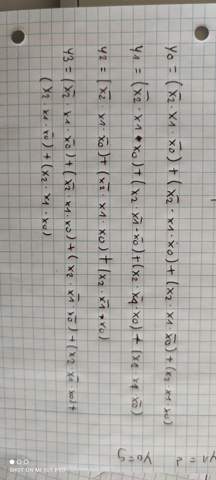 y0 = (x̄2 · x1 · x̄0) + (x̄2 · x1 · x0) + (x2 · x1 · x̄0) + (x2 · x1 · x0)
y1 = (x̄2 · x1 · x0) + (x2 · x̄1 · x̄0) + (x2 x1 x0) + (x2 x1 x̄0)
y2 = (x̄2 · x1 · x̄0) + (x̄2 · x1 · x0) + (x2 · x̄1 · x0)
y3 = (x̄2 · x1 · x̄0) + (x̄2 · x1 x0) + (x2 · x̄1 x̄0) + (x2 · x̄1 · x0) +
(x2 · x1 · x̄0) + (x2 · x1 · x0)
y0 = 5